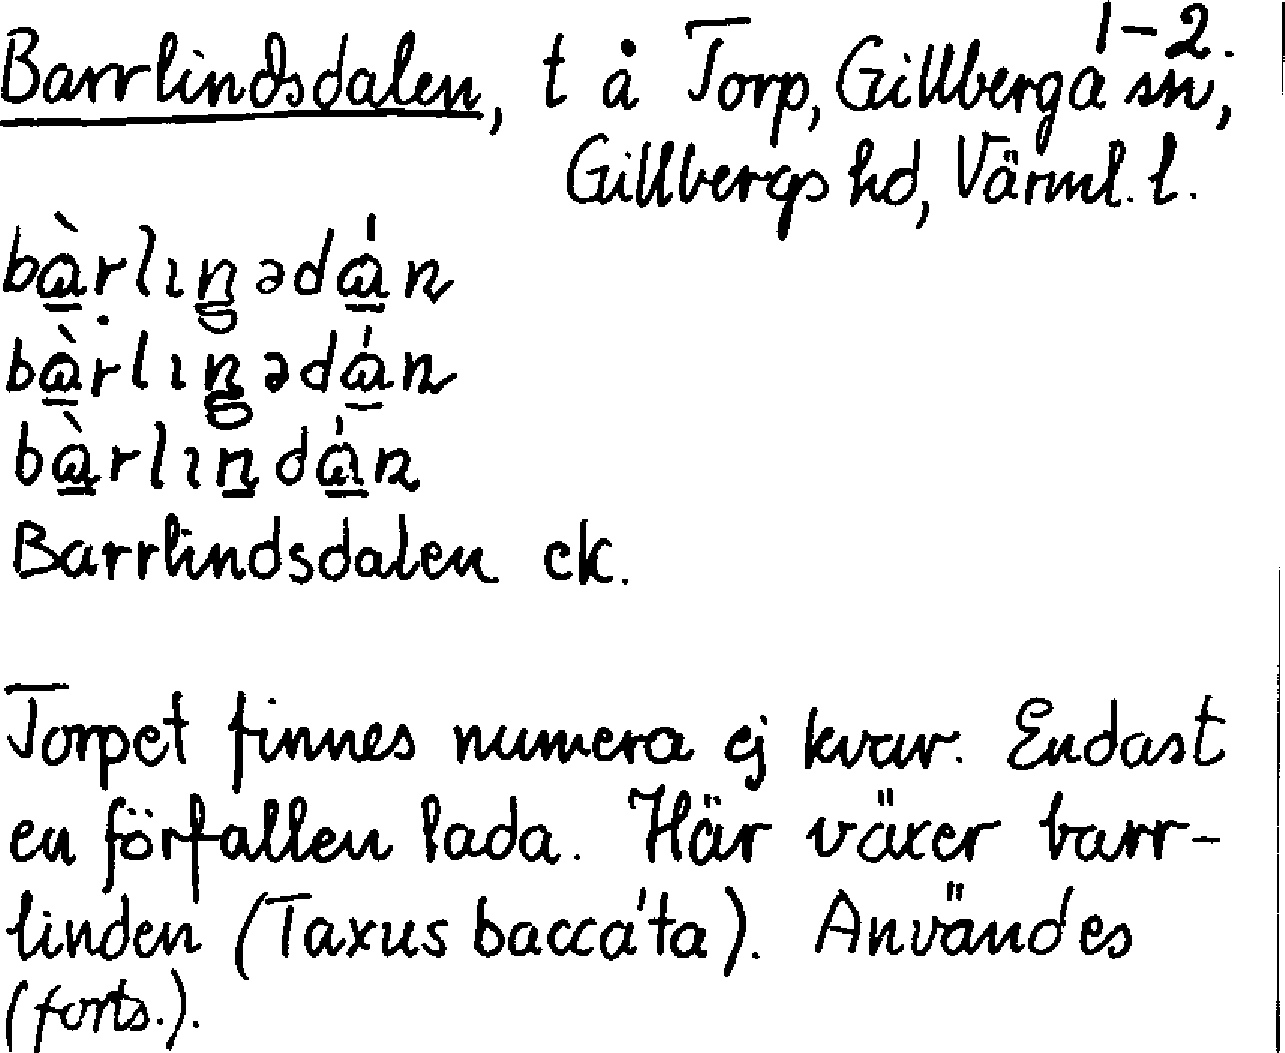 1-2.
Barrlindsdalen, t å Torp, Gillberga sn,
Gillbergs hd, Värml. l.
bàrlıŋədán
bàrlıŋədán
bàrlındán
Barrlindsdalen ek.
Torpet finnes numera ej kvar. Endast
en förfallen lada. Här växer barr-
linden (Taxus bacca'ta). Användes
(forts.).